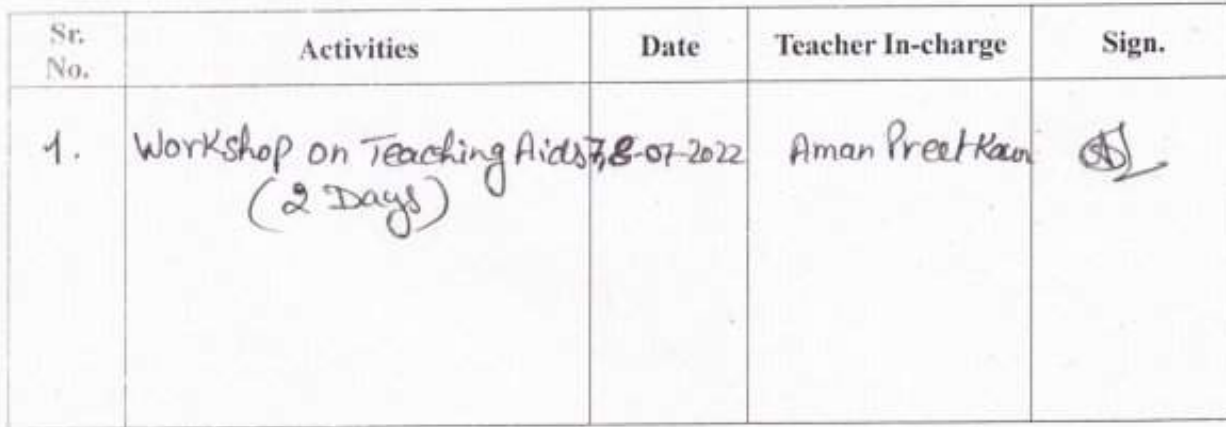 Sr. No. Activities Date Teacher In-charge Sign.
1. Workshop on Teaching Aids 7,8-07-2022 Aman Preet Kaur
(2 Days)